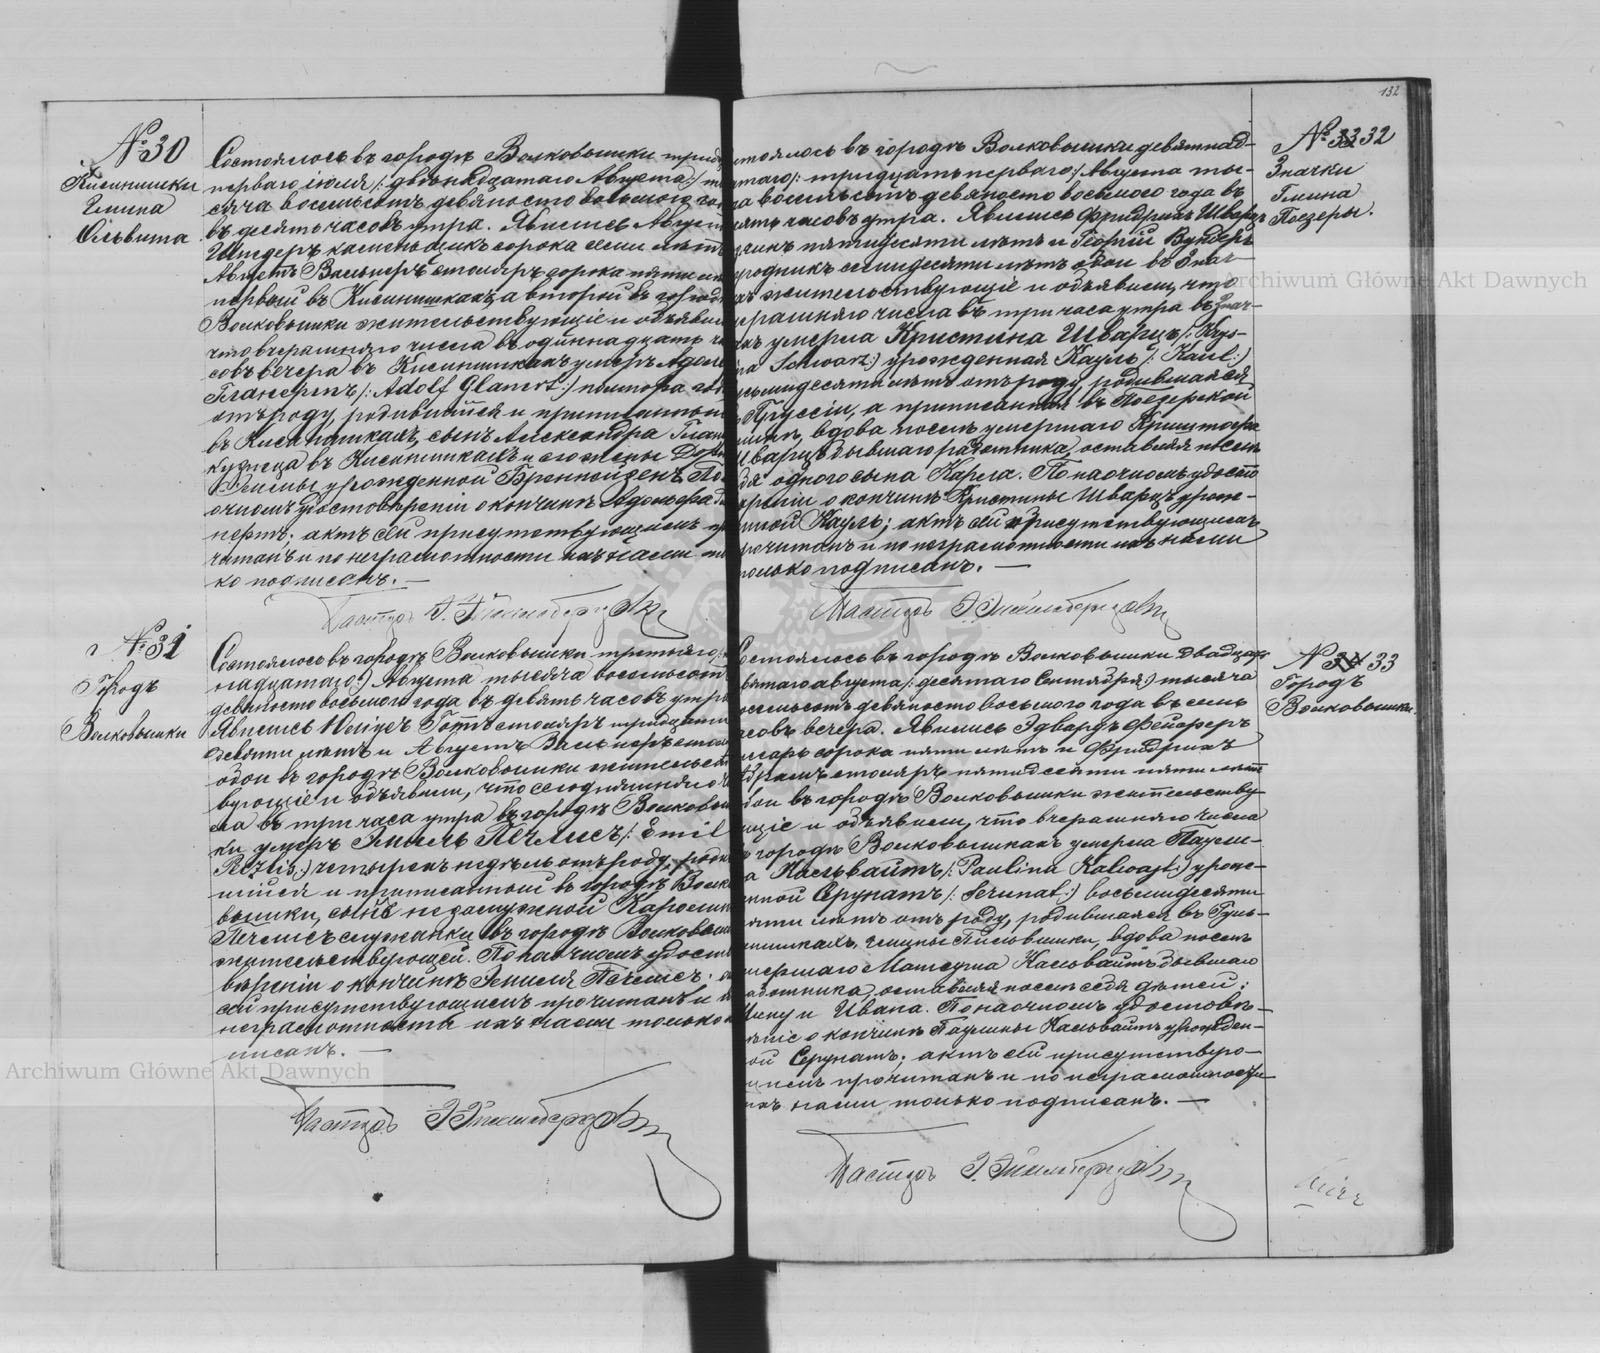 132
№ 30
Кисинишки
Гмина
Ольвита
Состоялось въ городѣ Волковышки тридц
перваго іюля /: двѣнадцатаго Августа :/ ты
сяча восемьсотъ девяносто восьмого го
въ десять часовъ утра. Явились Август
каменьщикъ сорока семи лѣтъ
Августъ Вальнеръ столяръ сорока пяти лѣ
первый въ Кисинишкахъ а второй въ город
Волковышки жительствующіе и объявил
что вчерашняго числа въ одиннадцать ча
совъ вечера въ Кисинишкахъ умеръ Адоль
Гланертъ /: Adolf Glanert :/ полтора год
отъ роду, родившійся и приписанный
въ Кисинишкахъ, сынъ Александра Глан
кузнеца въ Кисинишкахъ и его жены Дор
урожденной По
очномъ удостовѣреніи о кончинѣ Адольфа
нертъ; актъ сей присутствующимъ пр
читанъ и по неграмотности ихъ нами то
ко подписанъ. —
Пасторъ
№ 31
Городъ
Волковышки
Состоялось въ городѣ Волковышки третьяго
надцатаго :/ Августа тысяча восемьсотъ
девяносто восьмого года въ девять часовъ утра
Явились Юліусъ столяръ тридцати
девяти лѣтъ и Августъ Вальнеръ столя
обои въ городѣ Волковышки жительст
вующіе и объявили, что сегодняшняго чи
сла въ три часа утра въ городѣ Волковыш
ки умеръ Эмиль Печлисъ /: Emil
Pečlis :/ четырехъ недѣль отъ роду, роди
вшійся и приписанный въ городѣ Волко
вышки, сынъ незамужной Каролин
Печлисъ служанки въ городѣ Волковыш
жительствующей. По наочномъ удосто
вѣреніи о кончинѣ Эмиля Печлисъ; а
сей присутствующимъ прочитанъ и п
неграмотности ихъ нами только
писанъ. —
Пасторъ
№ 33 32
Значки
Гмина
Поезеры.
стоялось въ городѣ Волковышки девятнад-
цатаго /: тридцать перваго :/ Августа ты-
ча восемьсотъ девяносто восьмого года въ
сять часовъ утра. Явились Фридрихъ Шварцъ
пятидесяти лѣтъ и Георгій Вундеръ
городникъ семидесяти лѣтъ обои въ Знач-
ахъ жительствующіе и объявили, что
черашняго числа въ три часа утра въ Знач-
ахъ умерла Кристина Шварцъ /: Krys-
na Schwarz :/ урожденная Кауль /: Kaul :/
семидесяти лѣтъ отъ роду, родившаяся
въ Пруссіи, а приписанная въ Поезерской
минѣ, вдова послѣ умершаго Криштофа
Шварцъ бывшаго работника, оставивъ послѣ
бя одного сына Карла. По наочномъ удосто
вѣреніи о кончинѣ Кристины Шварцъ урож-
нной Кауль; актъ сей присутствующимъ
прочитанъ и по неграмотности ихъ нами
только подписанъ. —
Пасторъ
№ 34 33
Городъ
Волковышки
Состоялось въ городѣ Волковышки двадцать
вятаго августа /: десятаго Сентября :/ тысяча
восемьсотъ девяносто восьмого года въ семь
часовъ вечера. Явились Эдвардъ Фейферъ
сорока пяти лѣтъ и Фридрихъ
столяръ пятидесяти пяти лѣтъ
бои въ городѣ Волковышки жительству-
щіе и объявили, что вчерашняго числа
въ городѣ Волковышкахъ умерла Паули-
на Кальвайтъ /: Paulina Kalwajt :/ урож-
нной Серунатъ /: Serunat :/ восьмидесяти
яти лѣтъ отъ роду, родившаяся въ Гуль-
нишкахъ, гмины вдова послѣ
мершаго Матеуша Кальвайтъ бывшаго
аботника, оставивъ послѣ себя дѣтей:
и Ивана. По наочномъ удостовѣ-
ніе о кончинѣ Паулины Кальвайтъ урожден-
ой Серунатъ; актъ сей присутствую-
щимъ прочитанъ и по неграмотности
ихъ нами только подписанъ. —
Пасторъ
Archiwum Główne Akt Dawnych
Archiwum Główne Akt Dawnych